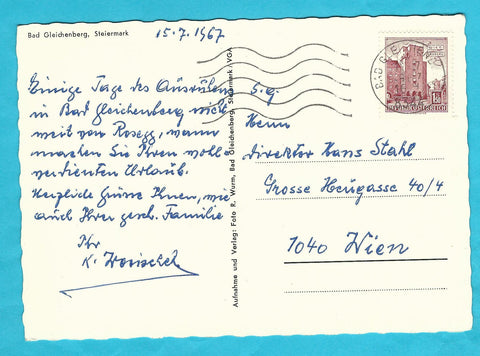 Bad Gleichenberg, Steiermark
15.7.1967
Einige Tage des Ausruhens
in Bad Gleichenberg nicht
weit von Rosegg, wann
machen Sie Ihren wohl
verdienten Urlaub.
Herzliche Grüsse Ihnen, wie
auch Ihrer gesch. Familie
Ihr
K.
Aufnahme und Verlag: Foto R. Wurm, Bad Gleichenberg, Steiermark / VGA
S.g.
Herrn
Direktor Hans Stahl
Grosse Neugasse 40/4
1040 Wien
BAD GLEICHENBERG
REPUBLIK ÖSTERREICH